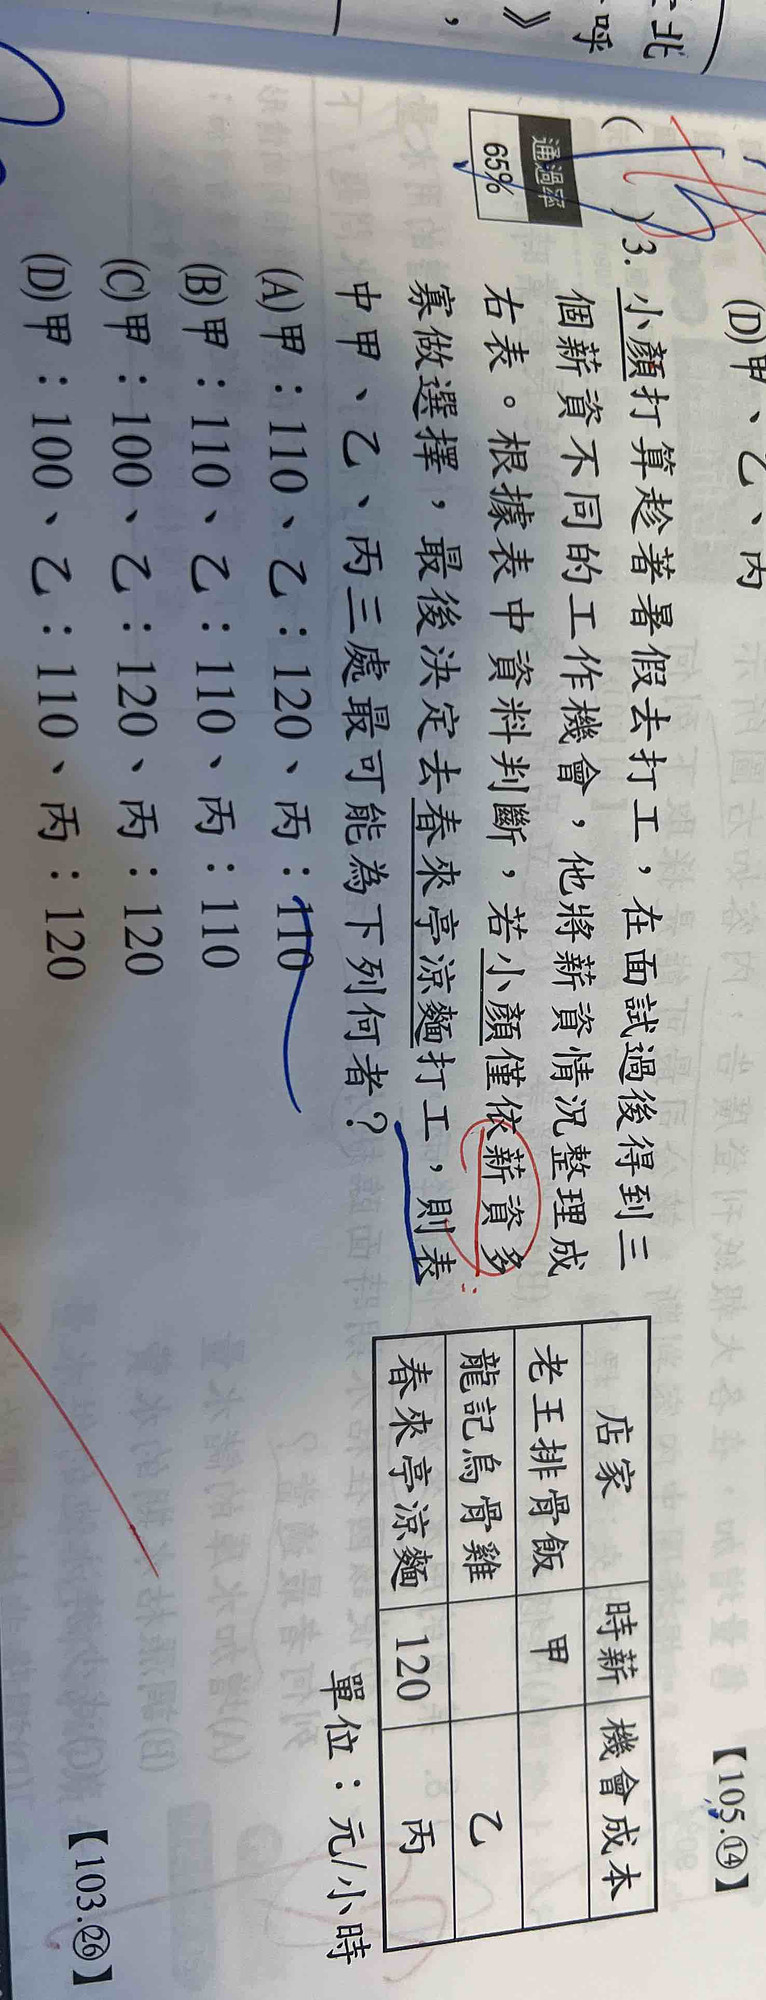 北
呼
》
,
(D)甲、乙、丙
【105.⑭】
( )3. 小顏打算趁著暑假去打工，在面試過後得到三
通過率
65%
個薪資不同的工作機會，他將薪資情況整理成
右表。根據表中資料判斷，若小顏僅依薪資多
寡做選擇，最後決定去春來亭涼麵打工，則表
中甲、乙、丙三處最可能為下列何者？
(A)甲：110、乙：120、丙：110
(B)甲：110、乙：110、丙：110
(C)甲：100、乙：120、丙：120
(D)甲：100、乙：110、丙：120
店家 時薪 機會成本
老王排骨飯 甲
龍記烏骨雞 乙
春來亭涼麵 120 丙
單位：元/小時
【103.㉖】